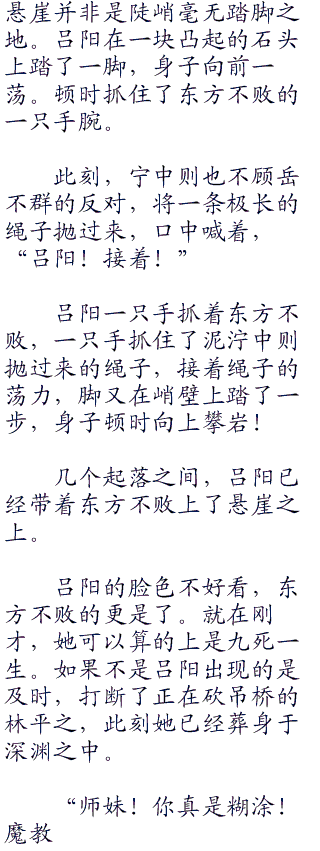 悬崖并非是陡峭毫无踏脚之
地。吕阳在一块凸起的石头
上踏了一脚，身子向前一
荡。顿时抓住了东方不败的
一只手腕。
此刻，宁中则也不顾岳
不群的反对，将一条极长的
绳子抛过来，口中喊着，
“吕阳！接着！”
吕阳一只手抓着东方不
败，一只手抓住了泥泞中则
抛过来的绳子，接着绳子的
荡力，脚又在峭壁上踏了一
步，身子顿时向上攀岩！
几个起落之间，吕阳已
经带着东方不败上了悬崖之
上。
吕阳的脸色不好看，东
方不败的更是了。就在刚
才，她可以算的上是九死一
生。如果不是吕阳出现的是
及时，打断了正在砍吊桥的
林平之，此刻她已经葬身于
深渊之中。
“师妹！你真是糊涂！
魔教